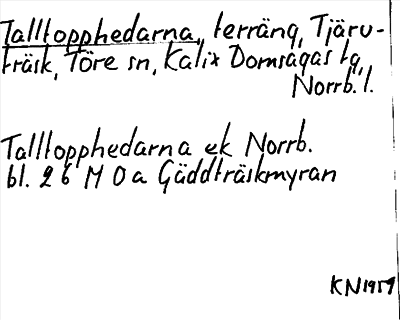 Talltopphedarna, terräng, Tjäru-
träsk, Töre sn, Kalix Domsagas tg,
Norrb. l.
Talltopphedarna ek Norrb.
bl. 26 M 0a Gäddträskmyran
KN1959